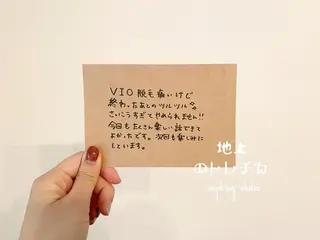 VIO脱毛痛いけど
終わったあとのツルツル
さいこうすぎてやめられません!!
今日もたくさん楽しい話できて
よかったです。次回も楽しみに
しています。
地上